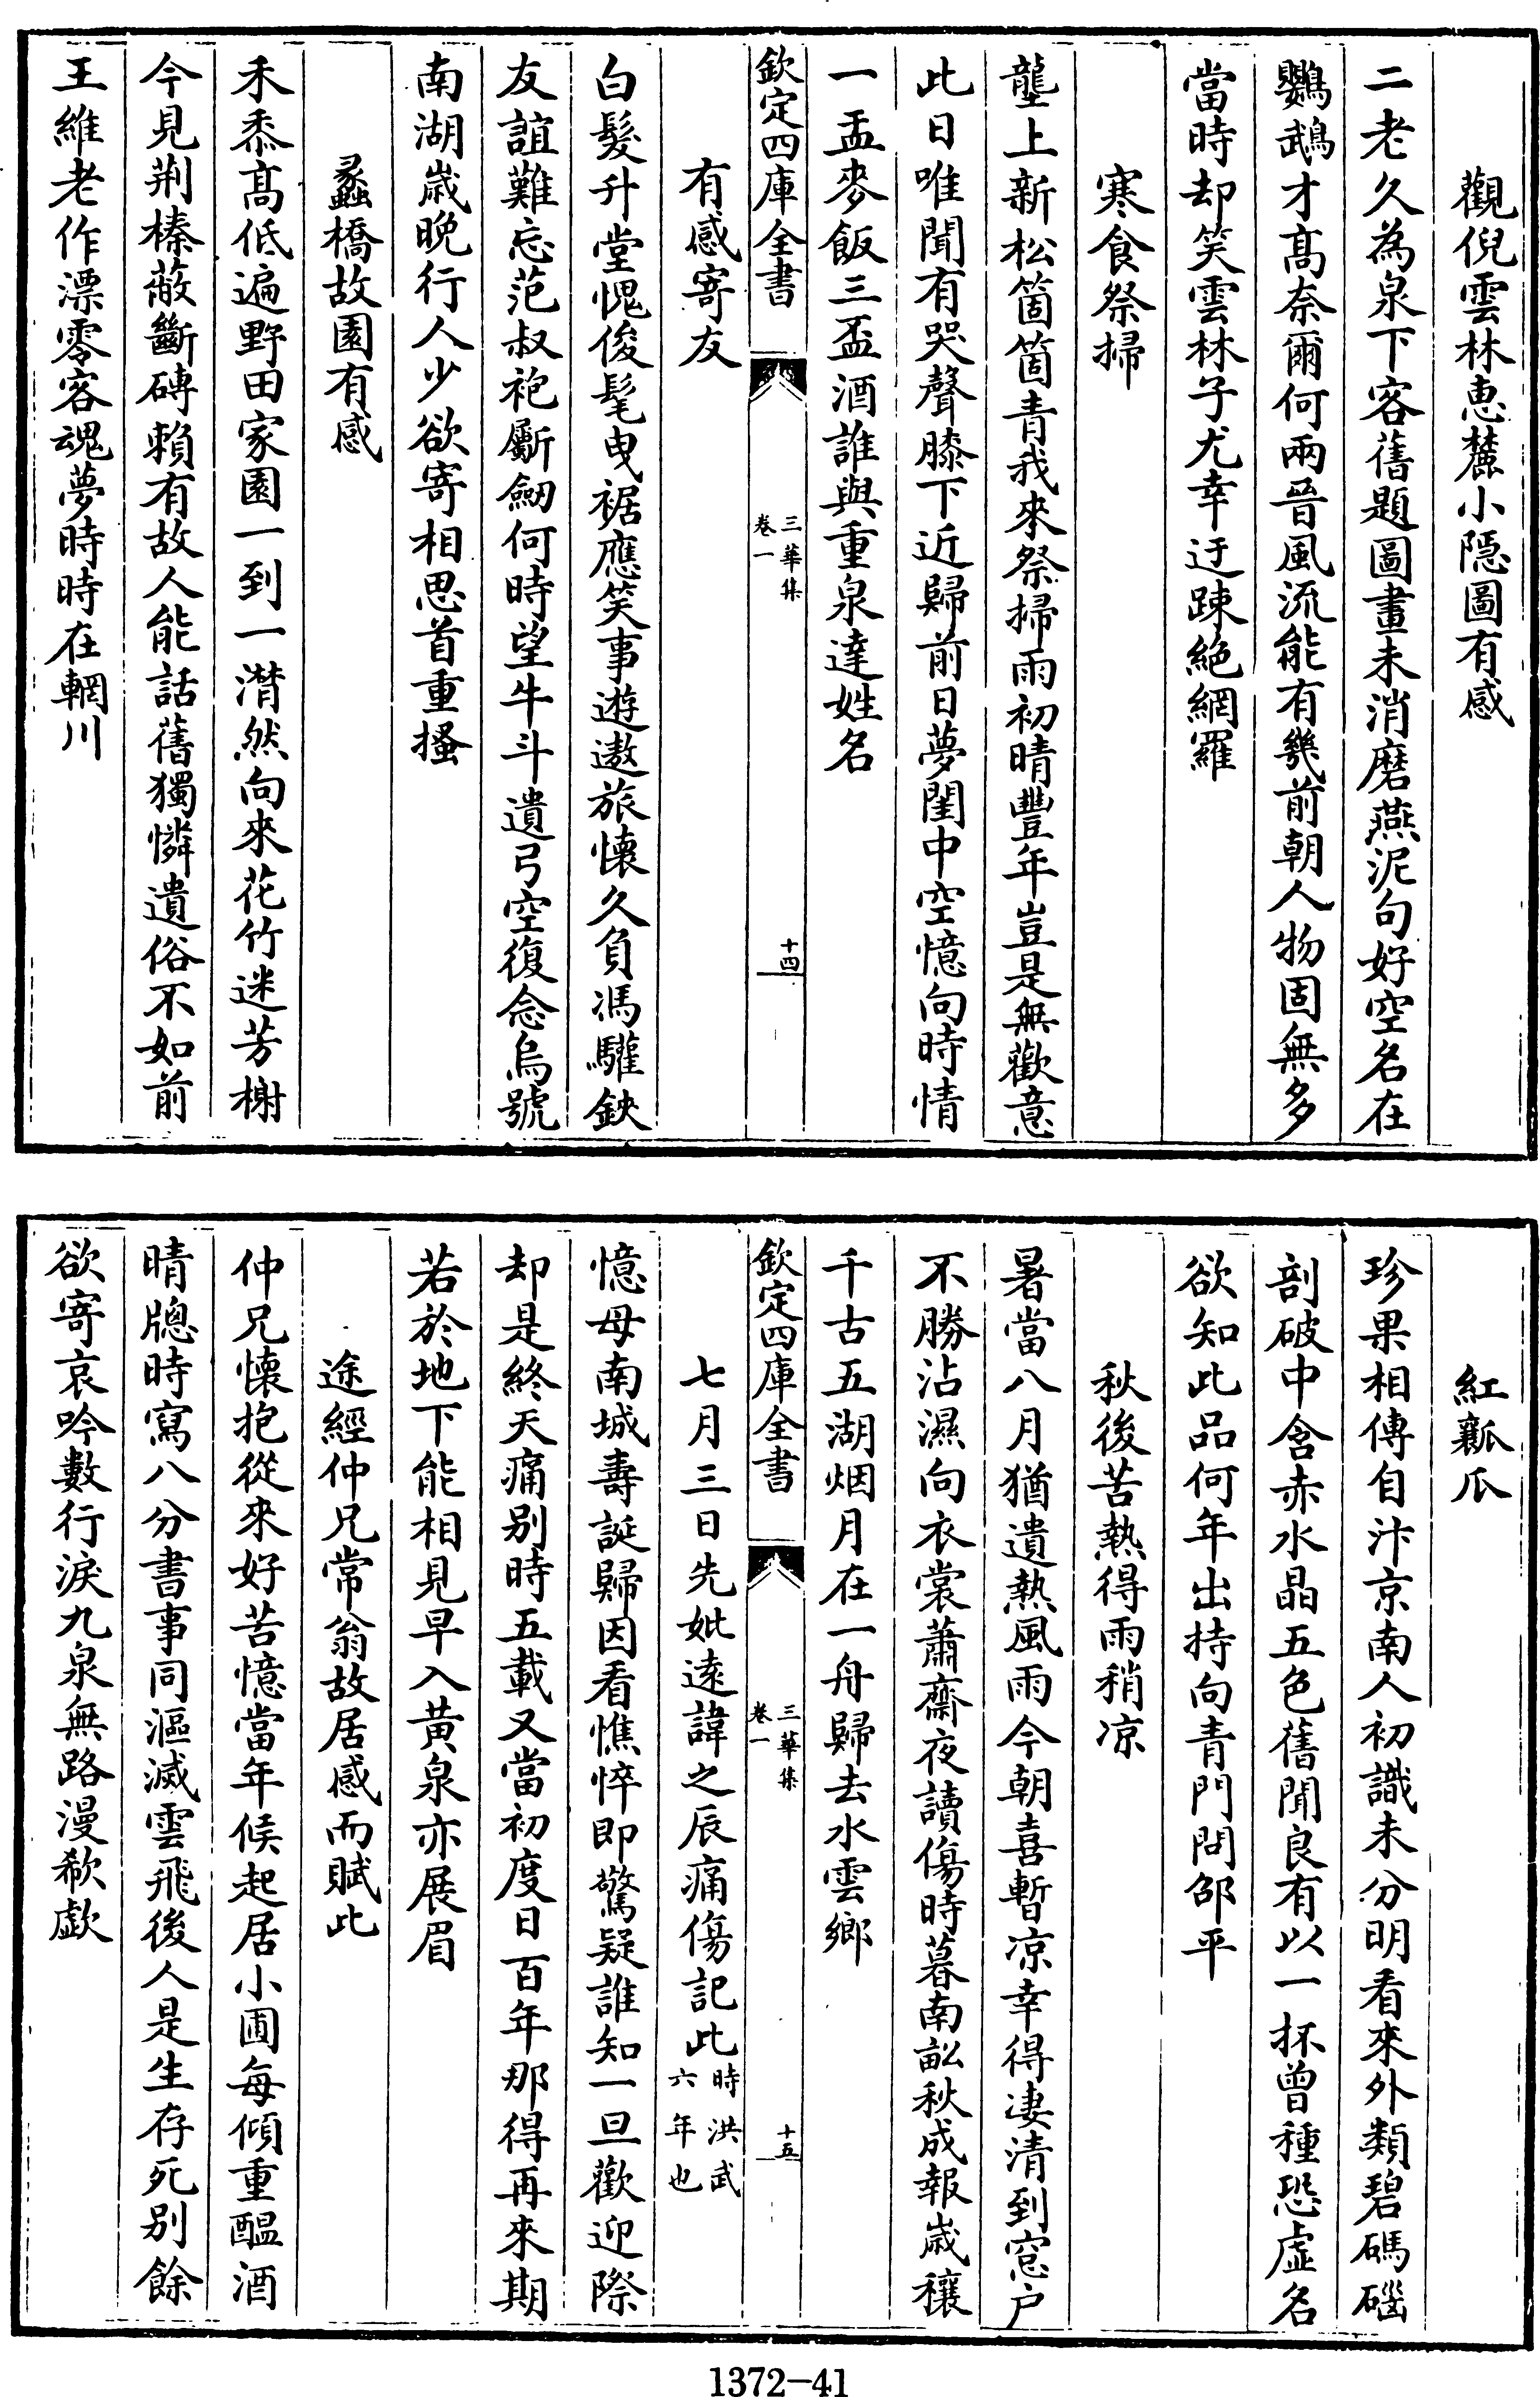 觀倪雲林恵麓小隠圖有感
二老久為泉下客舊題圖畫未消磨燕泥句好空名在
鸚鵡才髙奈爾何兩晉風流能有幾前朝人物固無多
當時却笑雲林子尤幸迂踈絶網羅
寒食祭掃
壟上新松箇箇青我來祭掃雨初晴豐年豈是無歡意
此日唯聞有哭聲膝下近歸前日夢閨中空憶向時情
一盂麥飯三盃酒誰與重泉達姓名
欽定四庫全書
三華集
卷一
十四
有感寄友
白髮升堂愧俊髦曳裾應笑事遊遨旅懷久負馮驩鋏
友誼難忘范叔袍斸劒何時望牛斗遺弓空復念烏號
南湖歳晚行人少欲寄相思首重搔
蠡橋故園有感
禾黍髙低遍野田家園一到一潸然向來花竹迷芳榭
今見荆榛蔽斷磚賴有故人能話舊獨憐遺俗不如前
王維老作漂零客魂夢時時在輞川
紅瓤瓜
珍果相傳自汴京南人初識未分明看來外類碧碼碯
剖破中含赤水晶五色舊聞良有以一抔曾種恐虚名
欲知此品何年出持向青門問邵平
秋後苦熱得雨稍凉
暑當八月猶遺熱風雨今朝喜暫凉幸得凄清到窓户
不勝沾濕向衣裳蕭齋夜讀傷時暮南畝秋成報歳穰
千古五湖烟月在一舟歸去水雲鄉
欽定四庫全書
三華集
卷一
十五
七月三日先妣逺諱之辰痛傷記此時洪武六年也
憶母南城壽誕歸因看憔悴即驚疑誰知一旦歡迎際
却是終天痛别時五載又當初度日百年那得再來期
若於地下能相見早入黄泉亦展眉
途經仲兄常翁故居感而賦此
仲兄懷抱從來好苦憶當年候起居小圃每傾重醖酒
晴牕時寫八分書事同漚滅雲飛後人是生存死别餘
欲寄哀吟數行淚九泉無路漫欷歔
1372-41